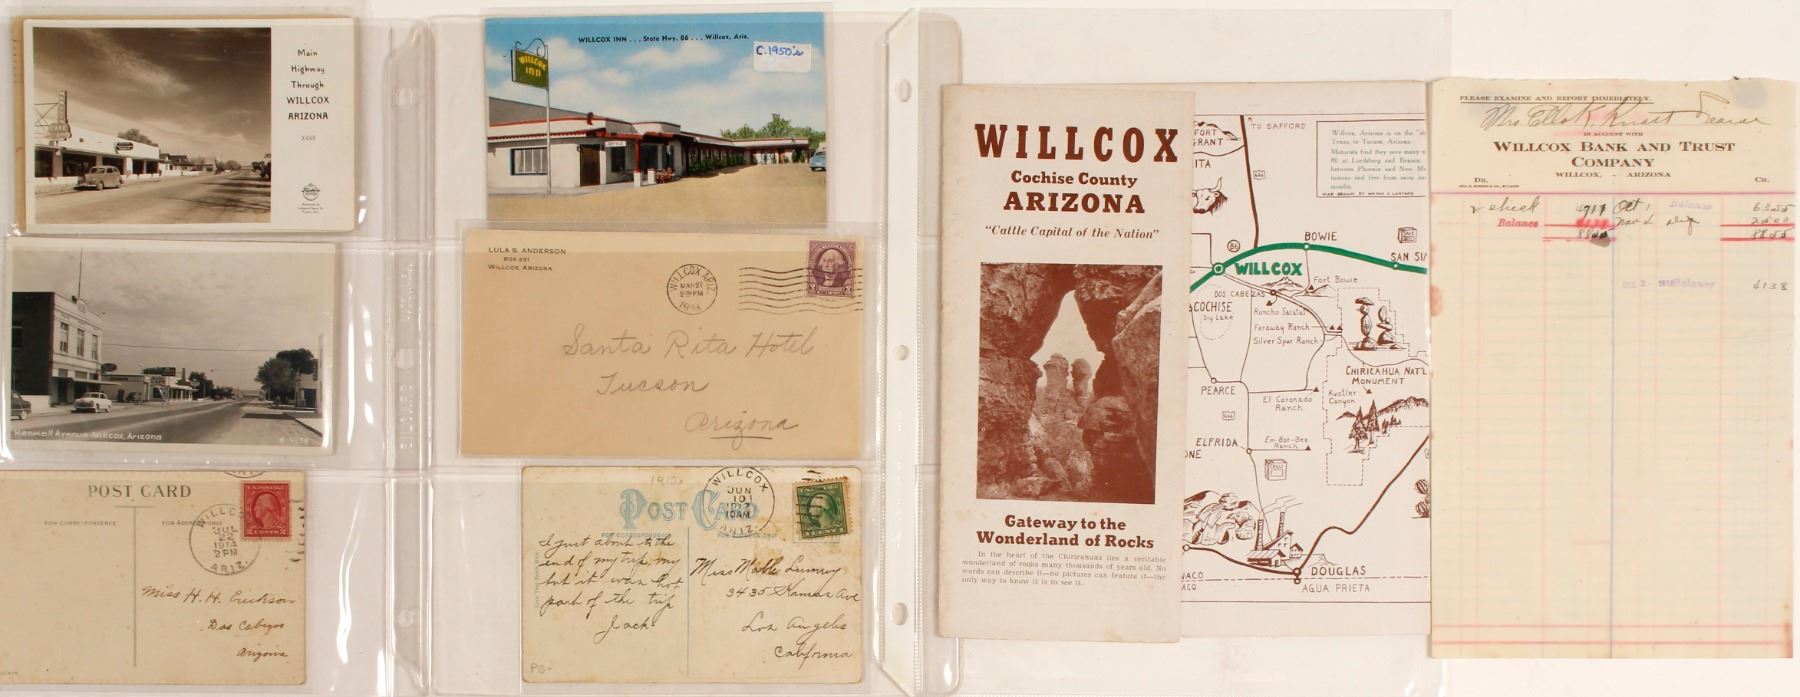 Main
Highway
Through
WILLCOX
ARIZONA
X448
CAFE
WILLCOX INN . . . State Hwy. 86 . . . Willcox, Ariz.
C.1950's
WILLCOX
INN
OFFICE
Haskell Avenue-Willcox, Arizona
LULA S. ANDERSON
BOX 291
WILLCOX, ARIZONA
WILLCOX, ARIZ.
MAR 27
Santa Rita Hotel
Tucson
Arizona
POST CARD
FOR CORRESPONDENCE
FOR ADDRESS ONLY
WILLCOX
JUL
22
1914
2 PM
ARIZ.
2 CENTS 2
Miss H. H. Erickson
Dos Cabezos
Arizona
1912
POST CARD
WILLCOX
JUN
10
10AM
ARIZ.
I just about to the
end of my trip, my
but it was hot
part of the trip
Jack
Miss Mable
3435 Kansas Ave
Los Angeles
California
PS-
WILLCOX
Cochise County
ARIZONA
"Cattle Capital of the Nation"
Gateway to the
Wonderland of Rocks
In the heart of the Chiricahuas lies a veritable
wonderland of rocks many thousands of years old. No
words can describe it—no pictures can feature it—the
only way to know it is to see it.
FORT
GRANT
TO SAFFORD
Willcox, Arizona is on the
Texas, to Tucson, Arizona.
Motorists find they save many
86 at Lordsburg and Benson,
between Phoenix and New
famous and free from snow
months.
MAP DRAWN BY WAYNE S. LANFORD
86
666
BOWIE
SAN SI
WILLCOX
Fort Bowie
DOS CABEZAS
COCHISE
Dry Lake
Rancho Sacatal
Faraway Ranch
Silver Spur Ranch
CHIRICAHUA NAT'L
MONUMENT
PEARCE
El Coronado
Ranch
Rustler
Canyon
666
ELFRIDA
ONE
Em-Bar-Bee
Ranch
DOUGLAS
NACO
ACO
AGUA PRIETA
PLEASE EXAMINE AND REPORT IMMEDIATELY.
IN ACCOUNT WITH
WILLCOX BANK AND TRUST
COMPANY
WILLCOX, - ARIZONA
DR.
CR.
2 check
Oct 1 Balance 6355
Balance
2500
8855
8855
Balance 4138